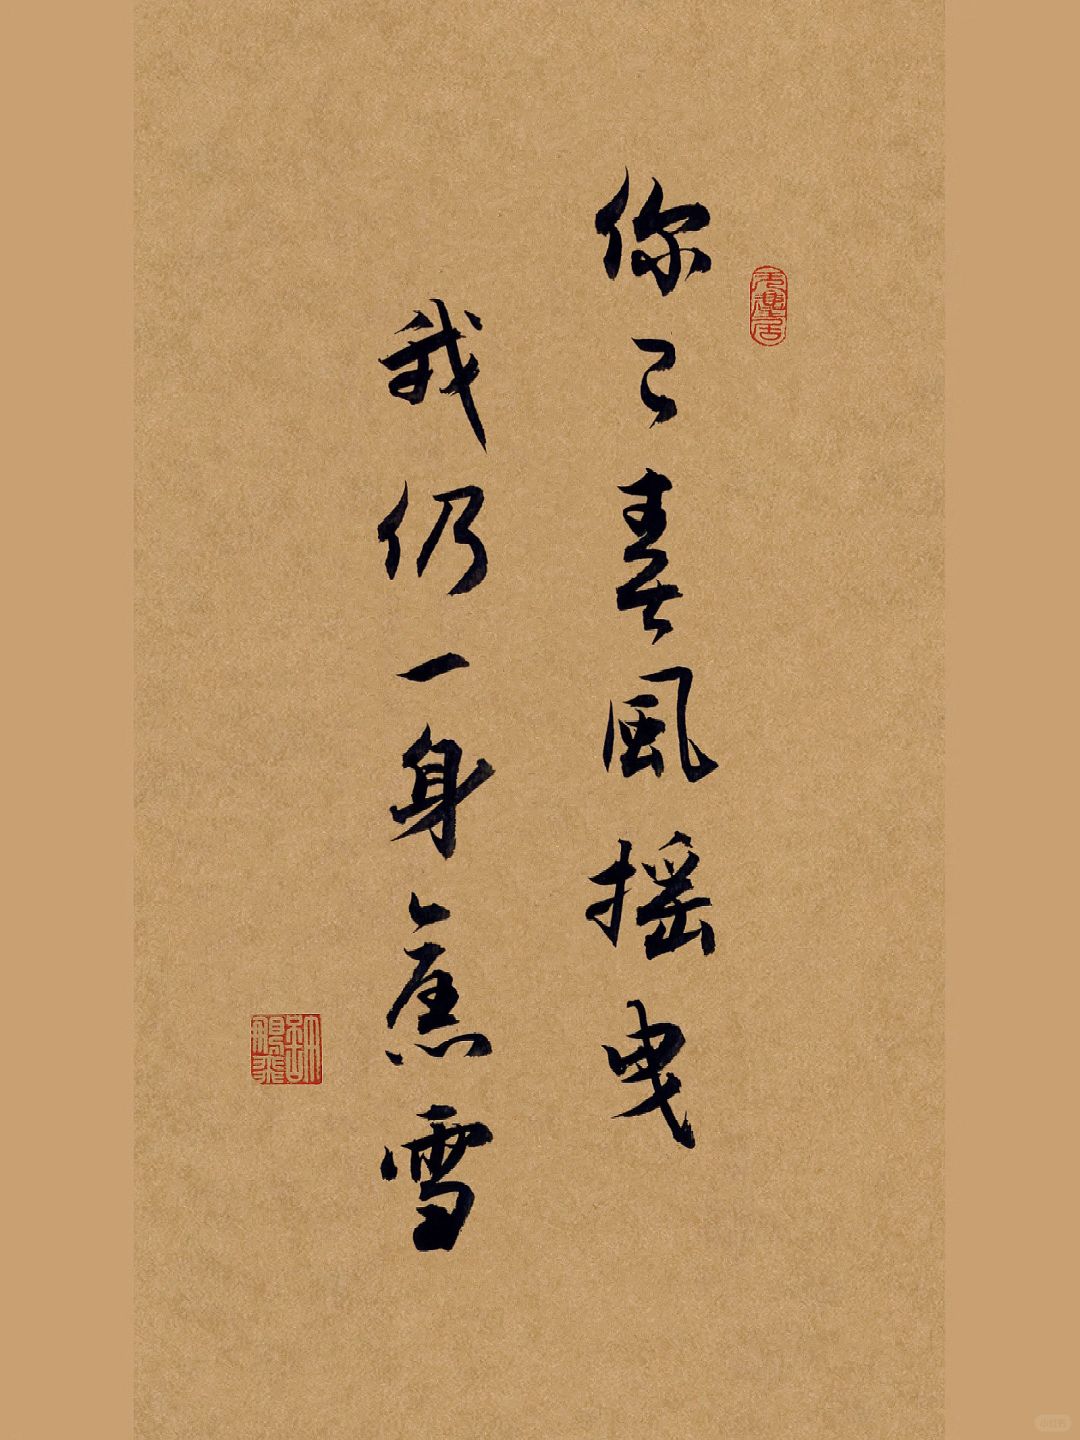 你已春風摇曳
我仍一身舊雪